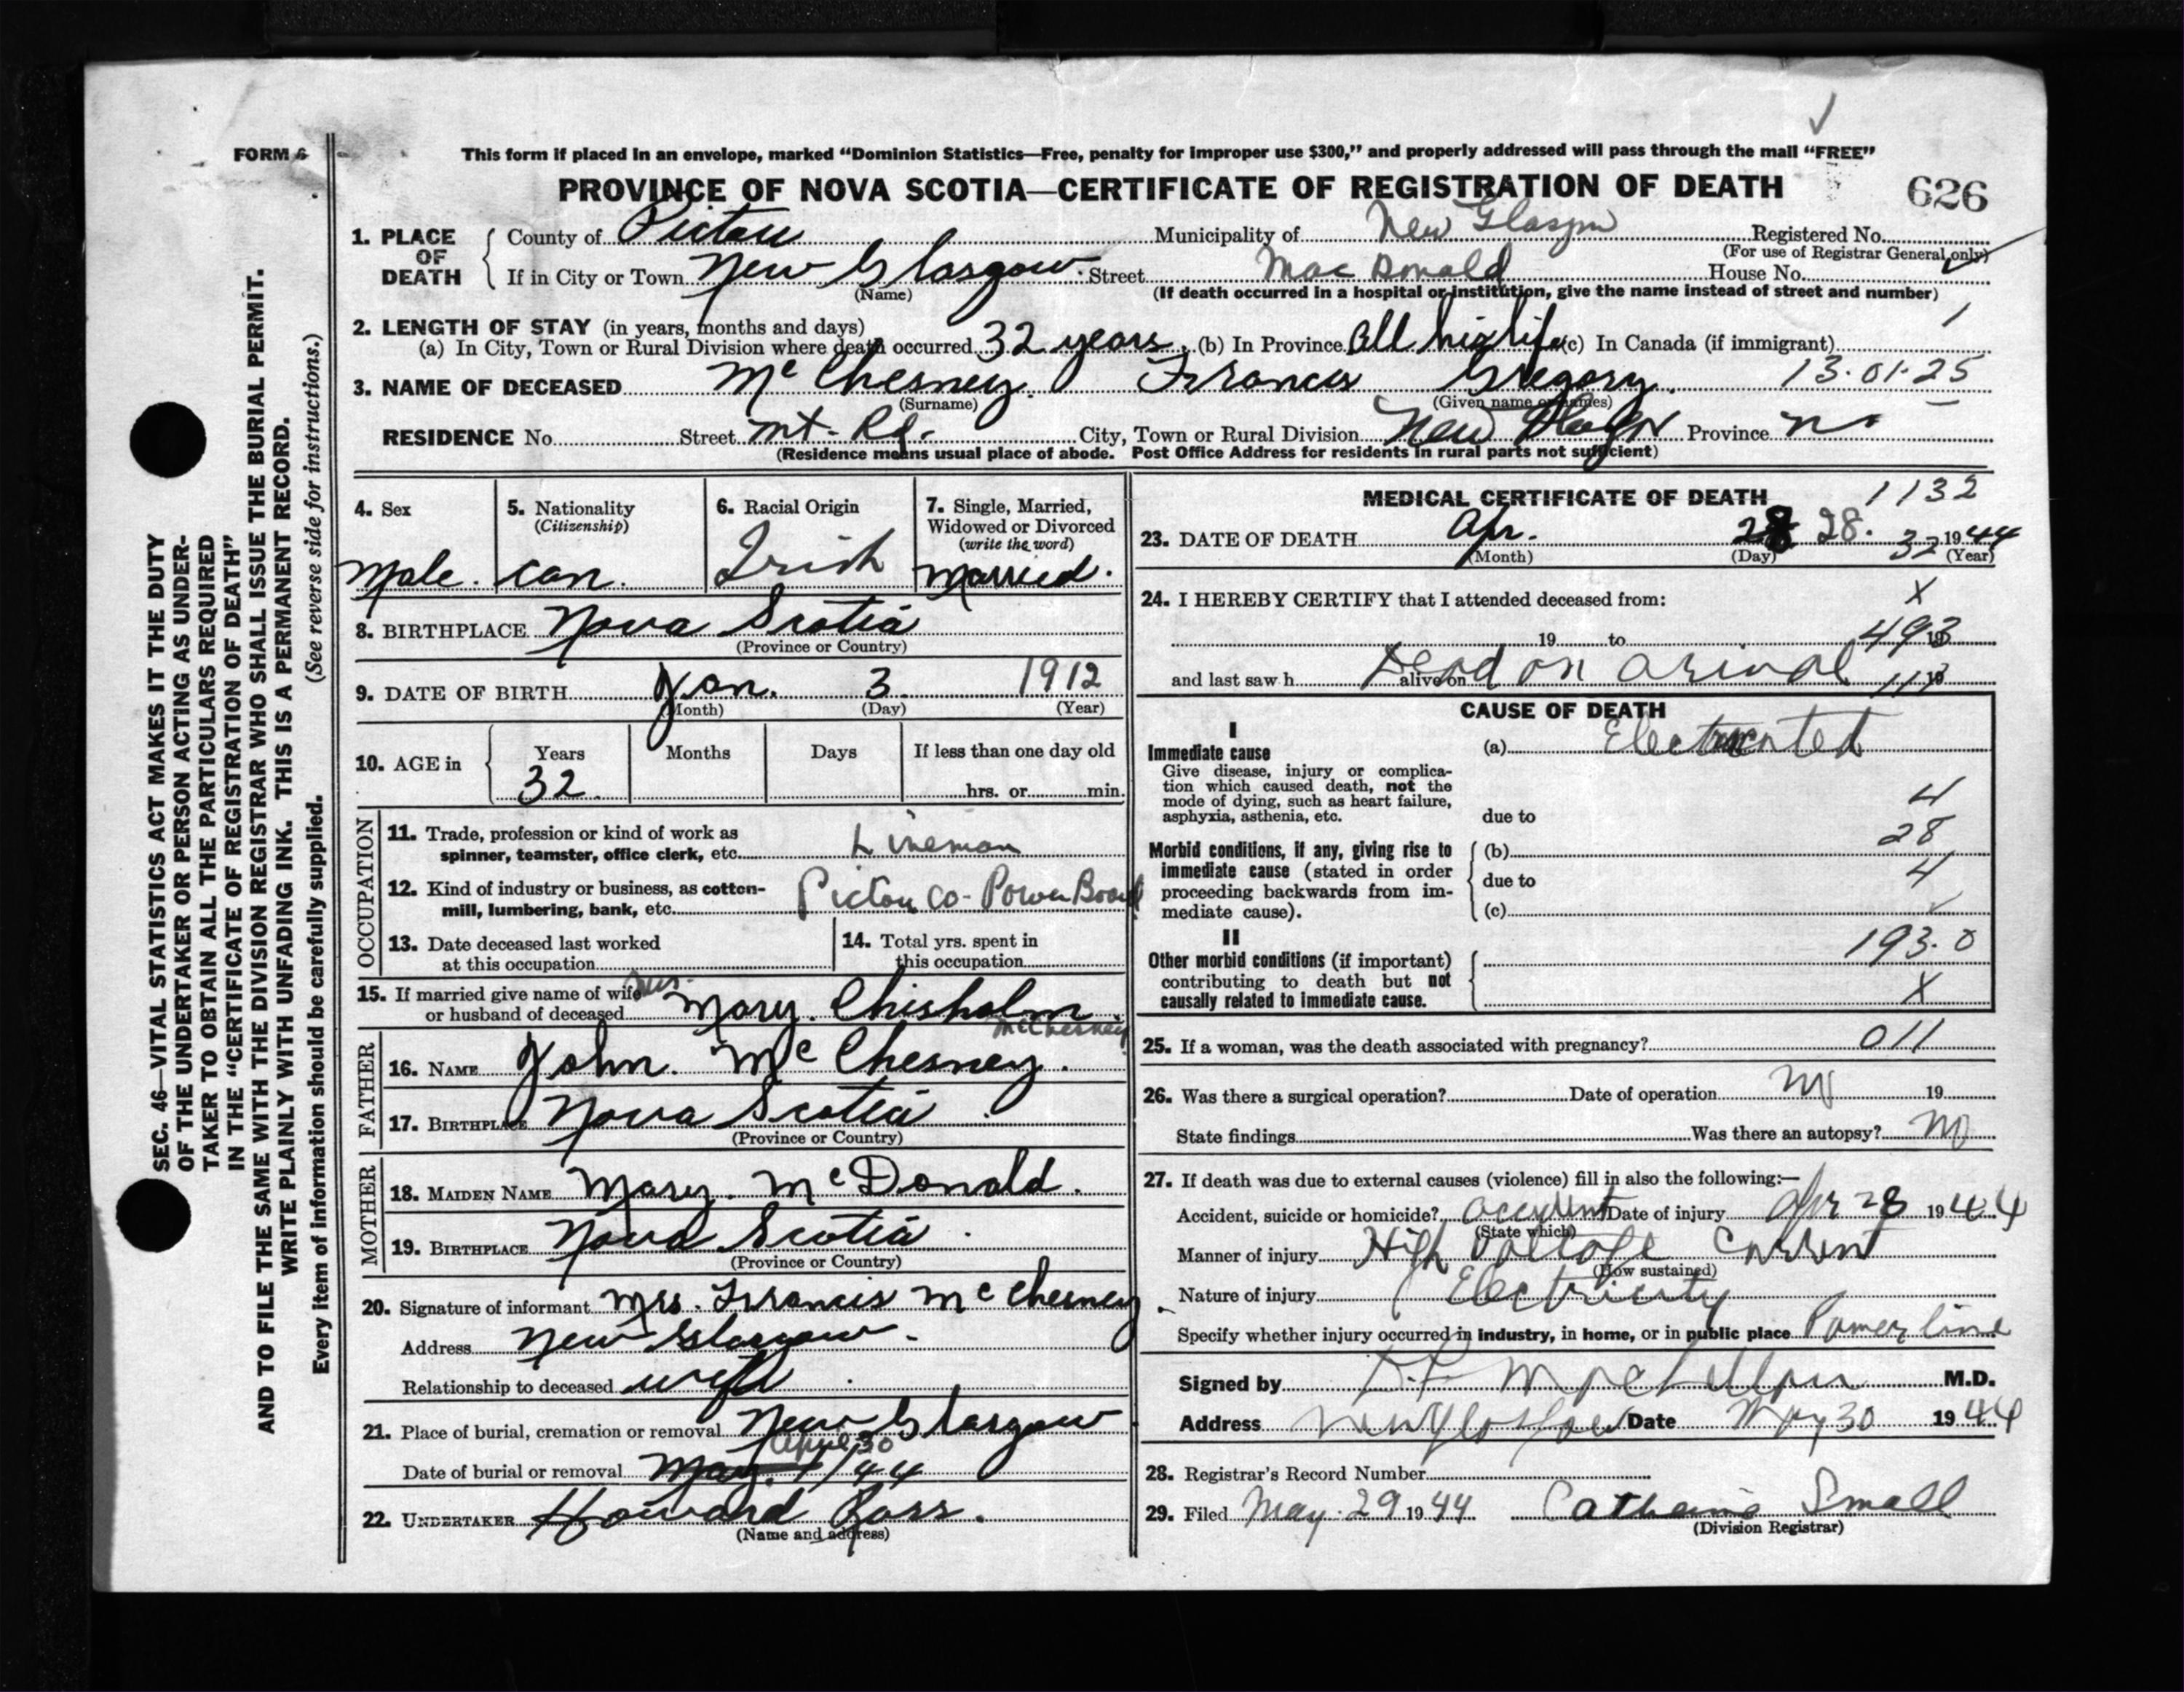 FORM 6
This form if placed in an envelope, marked “Dominion Statistics—Free, penalty for improper use $300,” and properly addressed will pass through the mail “FREE”
PROVINCE OF NOVA SCOTIA—CERTIFICATE OF REGISTRATION OF DEATH
626
1. PLACE OF DEATH County of Pictou Municipality of New Glasgow Registered No.
(For use of Registrar General only)
If in City or Town New Glasgow Street MacDonald House No.
(Name) (If death occurred in a hospital or institution, give the name instead of street and number)
2. LENGTH OF STAY (in years, months and days)
(a) In City, Town or Rural Division where death occurred 32 years. (b) In Province All his life (c) In Canada (if immigrant)
3. NAME OF DECEASED McChesney. Francis Gregory. 13.01.25
(Surname) (Given name or names)
RESIDENCE No. Street Mt. Rd. City, Town or Rural Division New Province
(Residence means usual place of abode. Post Office Address for residents in rural parts not sufficient)
4. Sex
Male.
5. Nationality
(Citizenship)
Can.
6. Racial Origin
Irish
7. Single, Married,
Widowed or Divorced
(write the word)
Married.
8. BIRTHPLACE Nova Scotia
(Province or Country)
9. DATE OF BIRTH Jan. 3. 1912
(Month) (Day) (Year)
10. AGE in Years Months Days If less than one day old
32. hrs. or min.
OCCUPATION
11. Trade, profession or kind of work as
spinner, teamster, office clerk, etc. Lineman
12. Kind of industry or business, as cotton-
mill, lumbering, bank, etc. Pictou Co- Power Board
13. Date deceased last worked
at this occupation
14. Total yrs. spent in
this occupation
15. If married give name of wife Mrs.
or husband of deceased Mary. Chisholm
McChesney
FATHER
16. NAME John. McChesney.
17. BIRTHPLACE Nova Scotia
(Province or Country)
MOTHER
18. MAIDEN NAME Mary. McDonald.
19. BIRTHPLACE Nova Scotia
(Province or Country)
20. Signature of informant Mrs. Francis McChesney.
Address New Glasgow.
Relationship to deceased wife
21. Place of burial, cremation or removal New Glasgow
April 30
Date of burial or removal May. 1/44
22. UNDERTAKER Howard Ross.
(Name and address)
MEDICAL CERTIFICATE OF DEATH 1132
23. DATE OF DEATH Apr. 28 28. 32 1944
(Month) (Day) (Year)
24. I HEREBY CERTIFY that I attended deceased from: X
19 to 493 19
and last saw h alive on Dead on arival 19
CAUSE OF DEATH
I
Immediate cause
Give disease, injury or complica-
tion which caused death, not the
mode of dying, such as heart failure,
asphyxia, asthenia, etc.
(a) Electrocuted
4
due to
28
Morbid conditions, if any, giving rise to
immediate cause (stated in order
proceeding backwards from im-
mediate cause).
(b)
due to 4
(c)
II
Other morbid conditions (if important)
contributing to death but not
causally related to immediate cause.
193.0
X
25. If a woman, was the death associated with pregnancy? 011
26. Was there a surgical operation? Date of operation No 19
State findings Was there an autopsy? No
27. If death was due to external causes (violence) fill in also the following:—
Accident, suicide or homicide? accident Date of injury Apr 28 1944
(State which)
Manner of injury High Voltage Current
(How sustained)
Nature of injury Electricity
Specify whether injury occurred in industry, in home, or in public place Power line
Signed by M.D.
Address New Glasgow Date May 30 1944
28. Registrar's Record Number
29. Filed May. 29 1944 Catherine Small
(Division Registrar)
SEC. 46—VITAL STATISTICS ACT MAKES IT THE DUTY
OF THE UNDERTAKER OR PERSON ACTING AS UNDER-
TAKER TO OBTAIN ALL THE PARTICULARS REQUIRED
IN THE “CERTIFICATE OF REGISTRATION OF DEATH”
AND TO FILE THE SAME WITH THE DIVISION REGISTRAR WHO SHALL ISSUE THE BURIAL PERMIT.
WRITE PLAINLY WITH UNFADING INK. THIS IS A PERMANENT RECORD.
Every item of information should be carefully supplied. (See reverse side for instructions.)